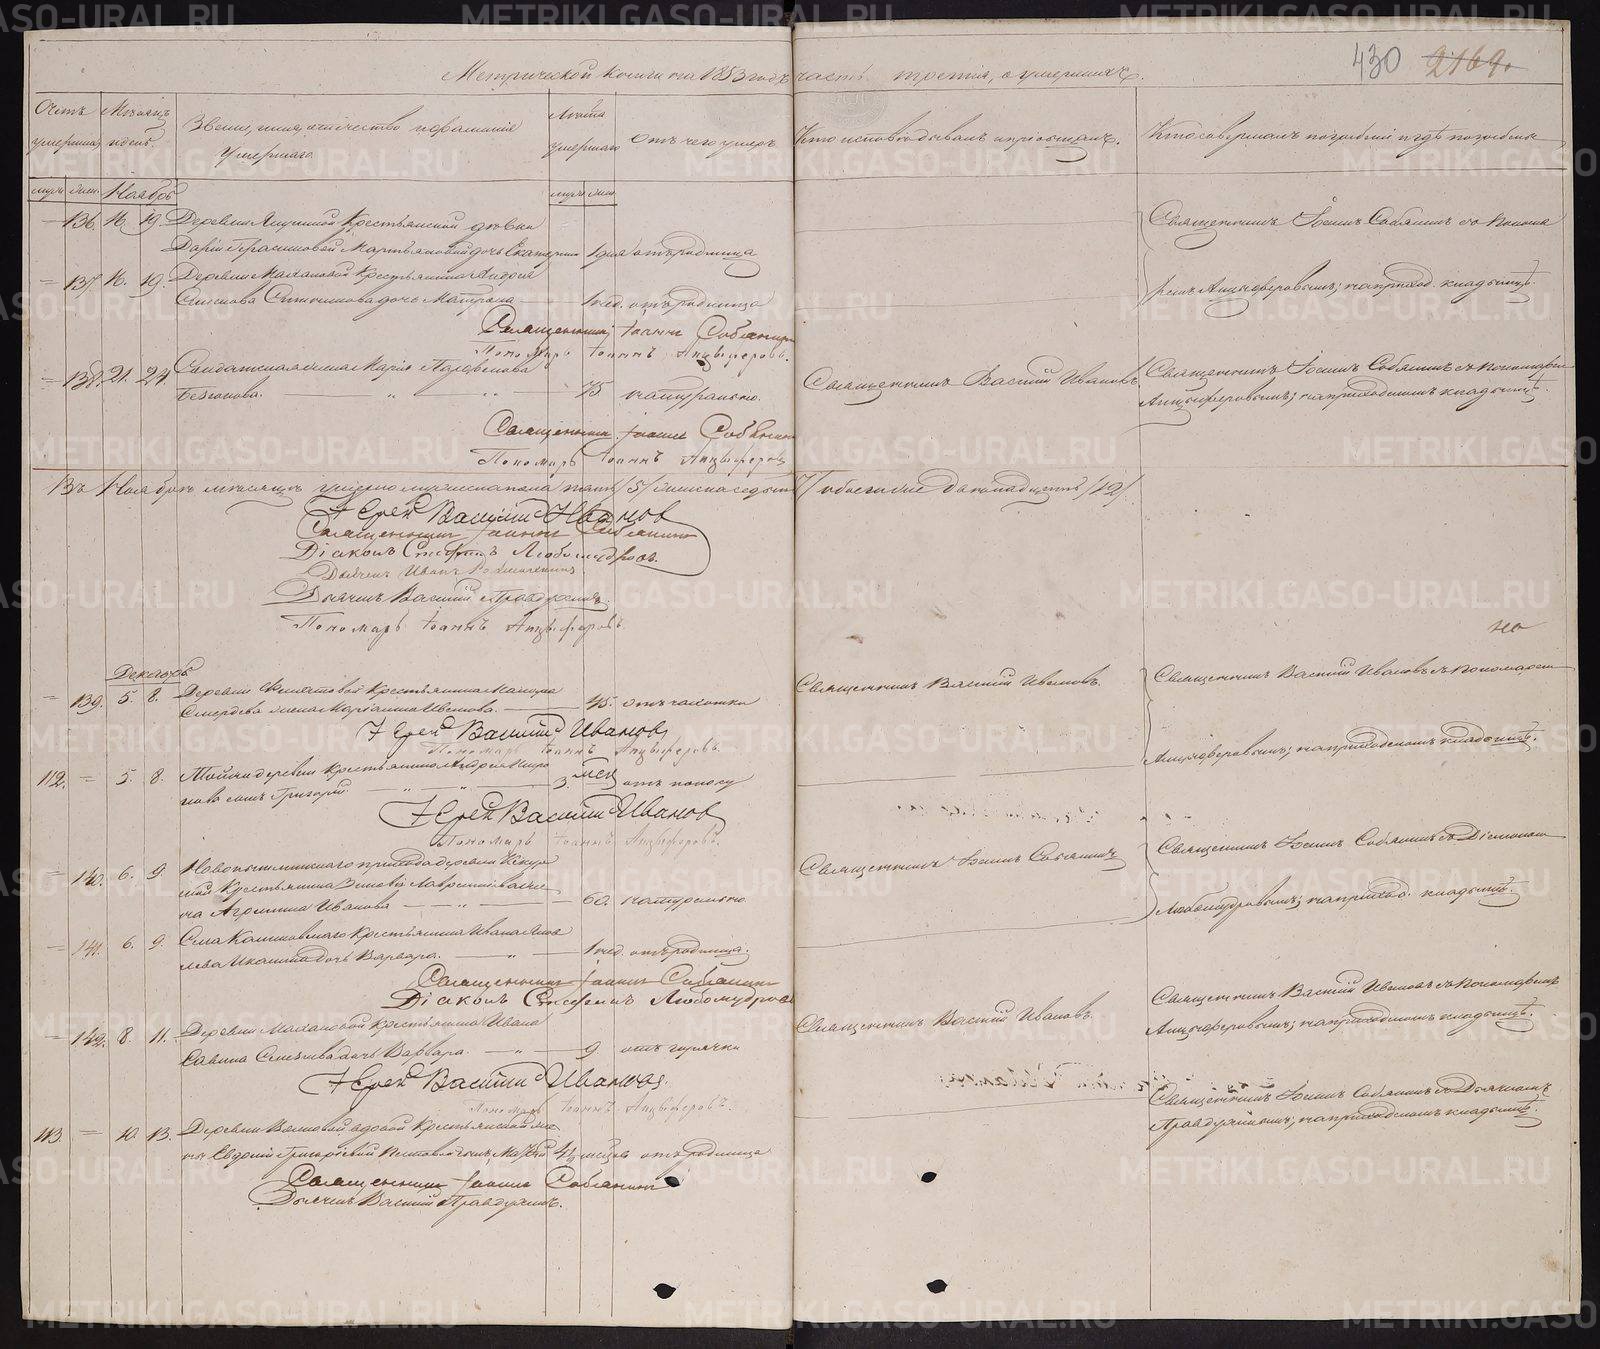 Метрической книги на 1853 годъ часть третія, о умершихъ.
430 2169.
Счетъ умершихъ
Мѣсяцъ и день
Званіе, имя, отчество и фамилія умершаго
Лѣта умершаго
Отъ чего умеръ
Кто исповѣдывалъ и пріобщалъ.
Кто совершалъ погребеніе и гдѣ погребены
муж. жен. Ноябрь муж. жен.
136. 16. 19. Деревни Крестьянской дѣвки
Дарьи Герасимовой Мартьяновой дочь Екатерина 1 дня отъ родимца
Священникъ Іоаннъ Собянинъ съ Понома
ремъ Анцыферовымъ; на приход. кладбищѣ.
137. 16. 19. Деревни Малановой Крестьянина Андрея
дочь Матрона 1 нед. отъ родимца
Священникъ Іоаннъ Собянинъ
Пономарь Іоаннъ Анцыферовъ.
138. 21. 24. Солдатская жена Марія Парфенова
75. натурально.
Священникъ Василій Ивановъ
Священникъ Іоаннъ Собянинъ съ Пономаремъ
Анцыферовымъ; на приходскомъ кладбищѣ.
Священникъ Іоаннъ Собянинъ
Пономарь Іоаннъ Анцыферовъ
Въ Ноябрѣ мѣсяцѣ умерло мужеска пола пять /5/ женска седмь /7/ обоего же двенадцать /12/
Іерей Василій Ивановъ
Священникъ Іоаннъ Собянинъ
Діаконъ Стефанъ Любомудровъ.
Дьячекъ Иванъ
Дьячекъ Василій Правдухинъ.
Пономарь Іоаннъ Анцыферовъ.
Декабрь
139. 5. 8. Деревни Крестьянина
жена Маріанна Иванова. 45. отъ чахотки
Священникъ Василій Ивановъ.
Священникъ Василій Ивановъ съ Пономаремъ
Анцыферовымъ; на приходскомъ кладбищѣ.
Іерей Василій Ивановъ
Пономарь Іоаннъ Анцыферовъ.
112. 5. 8. Той же деревни Крестьянина Андрея
сынъ Григорій 3. мсц отъ поносу
Іерей Василій Ивановъ
Пономарь Іоаннъ Анцыферовъ.
140. 6. 9. Новопышминскаго прихода деревни
Крестьянина Зиновія Лаврентіева же
на Агрипина Иванова 60. натурально
Священникъ Іоаннъ Собянинъ
Священникъ Іоаннъ Собянинъ съ Діакономъ
Любомудровымъ; на приход. кладбищѣ.
141. 6. 9. Села Калиновскаго Крестьянина Ивана Яков
лева дочь Варвара. 1 нед. отъ родимца.
Священникъ Іоаннъ Собянинъ
Діаконъ Стефанъ Любомудровъ
142. 8. 11. Деревни Малановой Крестьянина Ивана
Савина дочь Варвара. 9 отъ горячки
Священникъ Василій Ивановъ.
Священникъ Василій Ивановъ съ Пономаремъ
Анцыферовымъ; на приходскомъ кладбищѣ.
Іерей Василій Ивановъ.
Пономарь Іоаннъ Анцыферовъ.
113. 10. 13. Деревни вдовой Крестьянской же
ны Евдокіи Григорьевой сынъ отъ родимца
Священникъ Іоаннъ Собянинъ съ Дьячкомъ
Правдухинымъ; на приходскомъ кладбищѣ.
Священникъ Іоаннъ Собянинъ
Дьячекъ Василій Правдухинъ.
METRIKI.GASO-URAL.RU